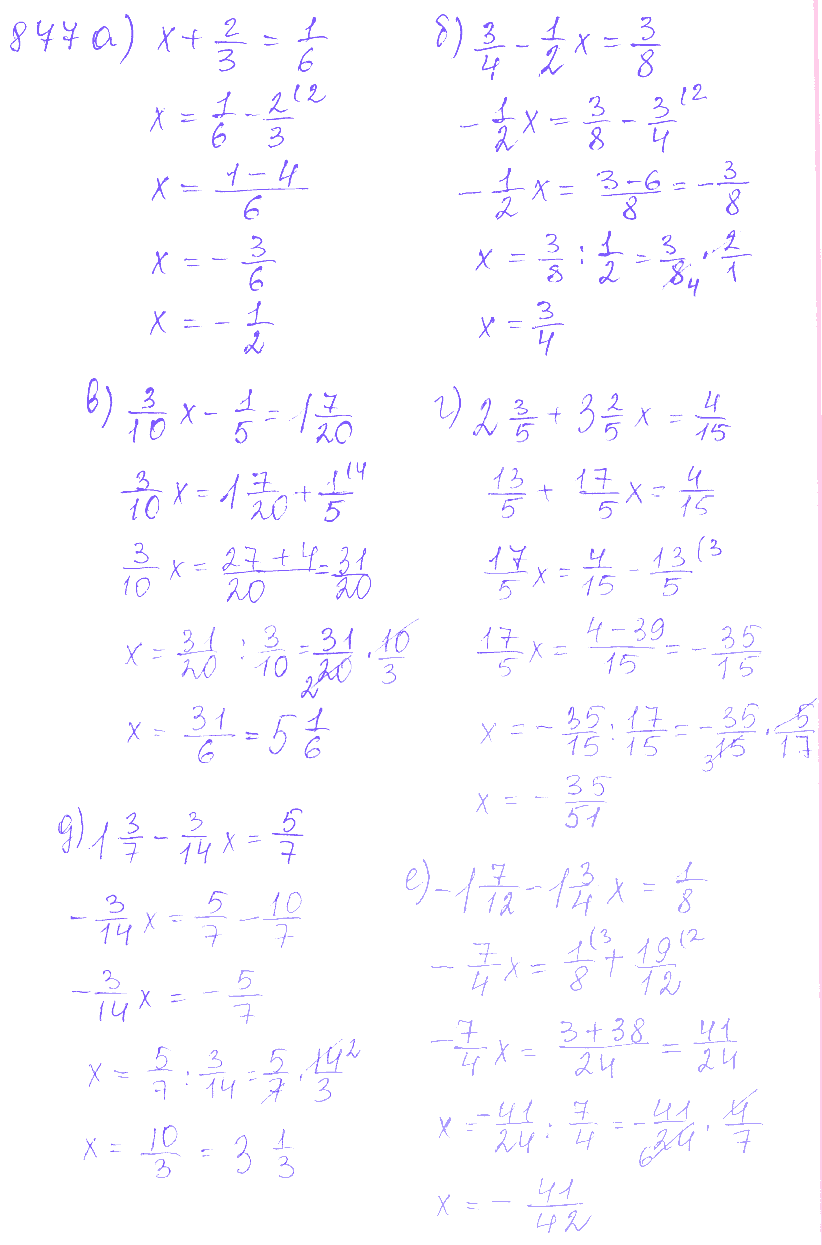 847 а) x + 2/3 = 1/6
x = 1/6 - 2/3 (2
x = (1 - 4)/6
x = - 3/6
x = - 1/2
б) 3/4 - 1/2 x = 3/8
- 1/2 x = 3/8 - 3/4 (2
- 1/2 x = (3 - 6)/8 = - 3/8
x = 3/8 : 1/2 = 3/8 4 · 2/1
x = 3/4
в) 3/10 x - 1/5 = 1 7/20
3/10 x = 1 7/20 + 1/5 (4
3/10 x = (27 + 4)/20 = 31/20
x = 31/20 : 3/10 = 31/20 2 · 10/3
x = 31/6 = 5 1/6
г) 2 3/5 + 3 2/5 x = 4/15
13/5 + 17/5 x = 4/15
17/5 x = 4/15 - 13/5 (3
17/5 x = (4 - 39)/15 = - 35/15
x = - 35/15 : 17/15 = - 35/15 3 · 5/17
x = - 35/51
д) 1 3/7 - 3/14 x = 5/7
- 3/14 x = 5/7 - 10/7
- 3/14 x = - 5/7
x = 5/7 : 3/14 = 5/7 · 14 2/3
x = 10/3 = 3 1/3
е) - 1 7/12 - 1 3/4 x = 1/8
- 7/4 x = 1/8 (3 + 19/12 (2
- 7/4 x = (3 + 38)/24 = 41/24
x = - 41/24 : 7/4 = - 41/24 6 · 4/7
x = - 41/42